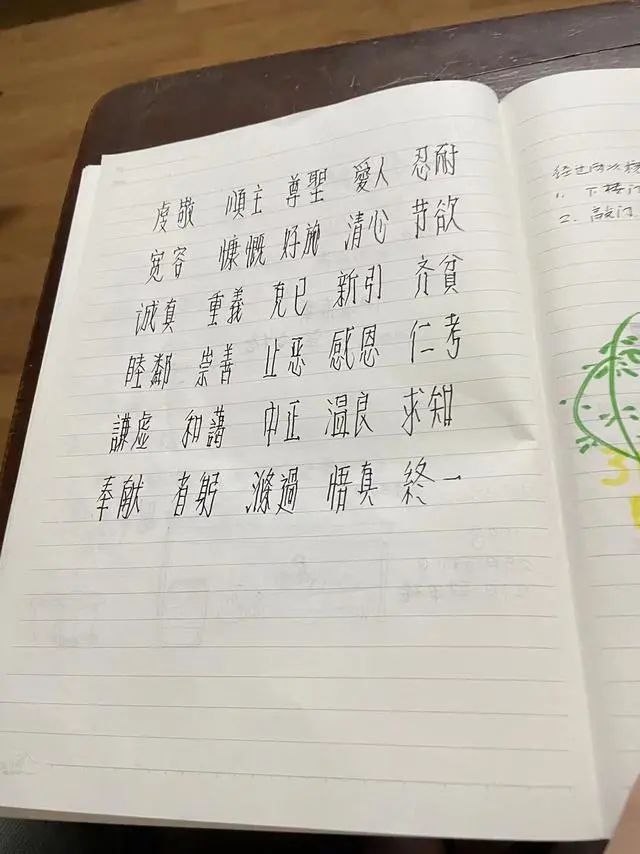 虔敬 順主 尊聖 愛人 忍耐
宽容 慷慨 好施 清心 节欲
诚真 重義 克已 新引 齐貧
睦鄰 崇善 止恶 感恩 仁考
謙虚 和藹 中正 温良 求知
奉献 省躬 滌過 悟真 終一
1. 下楼门
2. 敲门